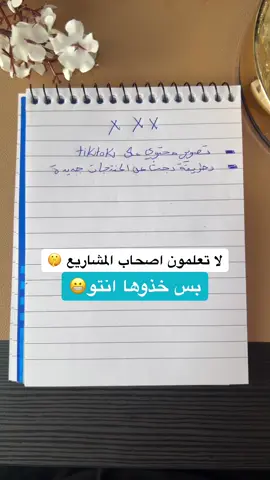 X X X
- تصوير محتوى على tiktok
- وطريقة بحث عن المنتجات جديدة
لا تعلمون اصحاب المشاريع 🤫
بس خذوها انتو😬